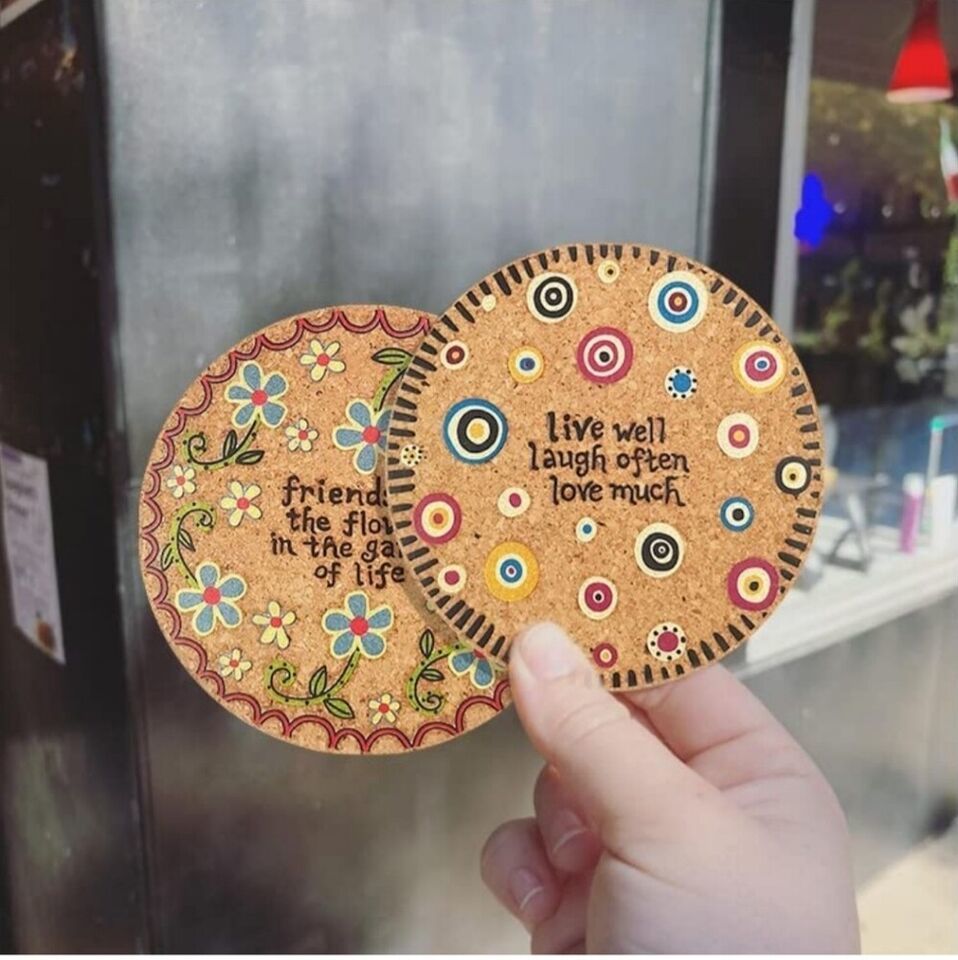 friend
the flo
in the ga
of life
live well
laugh often
love much